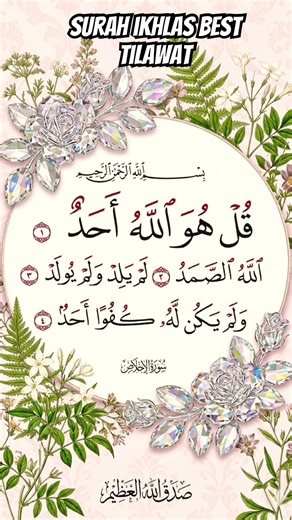 SURAH IKHLAS BEST
TILAWAT
بِسْمِ ٱللَّهِ ٱلرَّحْمَٰنِ ٱلرَّحِيمِ
قُلْ هُوَ ٱللَّهُ أَحَدٌ ١
ٱللَّهُ ٱلصَّمَدُ ٢ لَمْ يَلِدْ وَلَمْ يُولَدْ ٣
وَلَمْ يَكُن لَّهُۥ كُفُوًا أَحَدٌۢ ٤
سُورَةُ الإِخْلَاصِ
صَدَقَ اللَّهُ الْعَظِيمُ